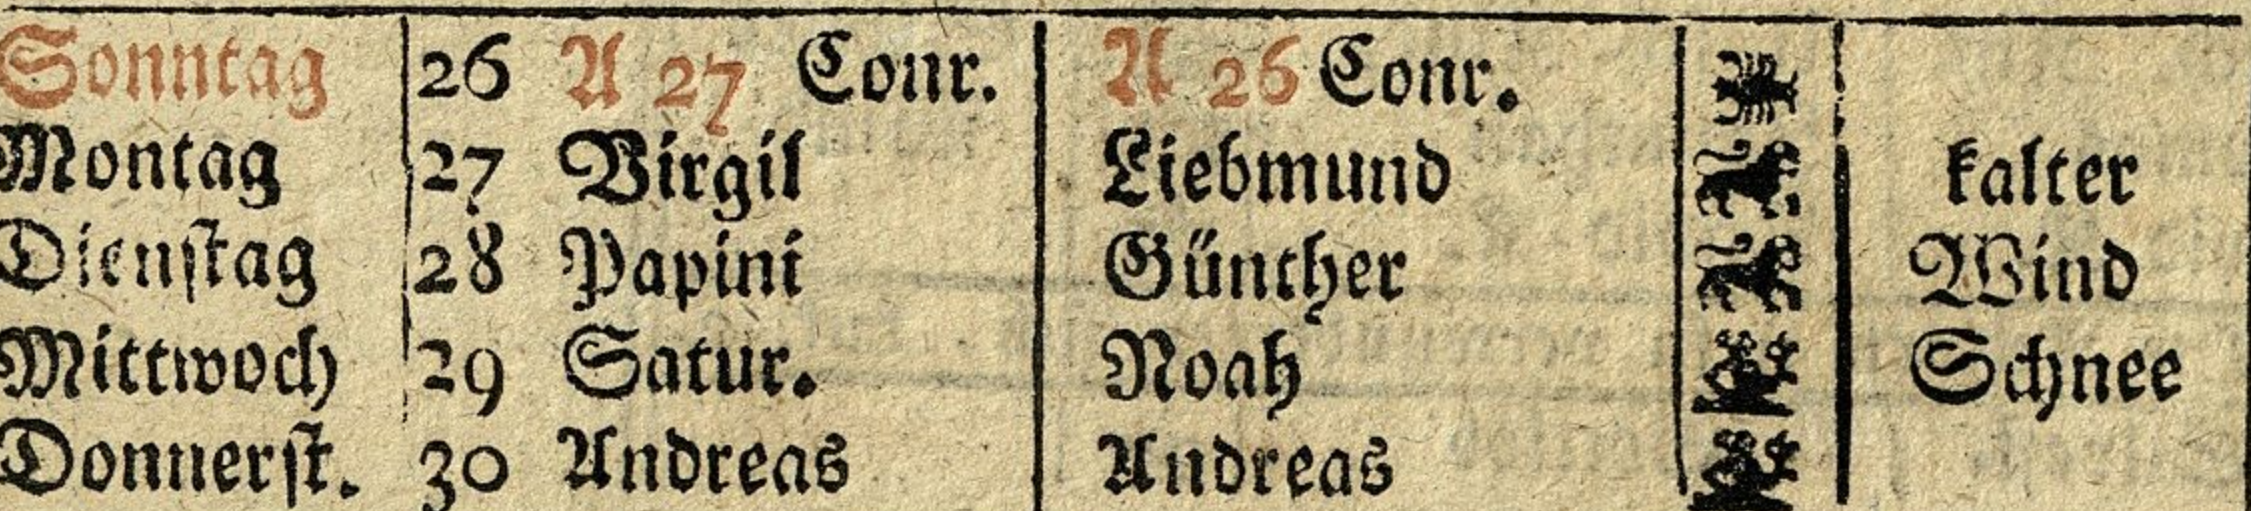 Sonntag 26 A 27 Conr. A 26 Conr.
Montag 27 Virgil Liebmund kalter
Dienſtag 28 Papini Günther Wind
Mittwoch 29 Satur. Noah Schnee
Donnerſt. 30 Andreas Andreas